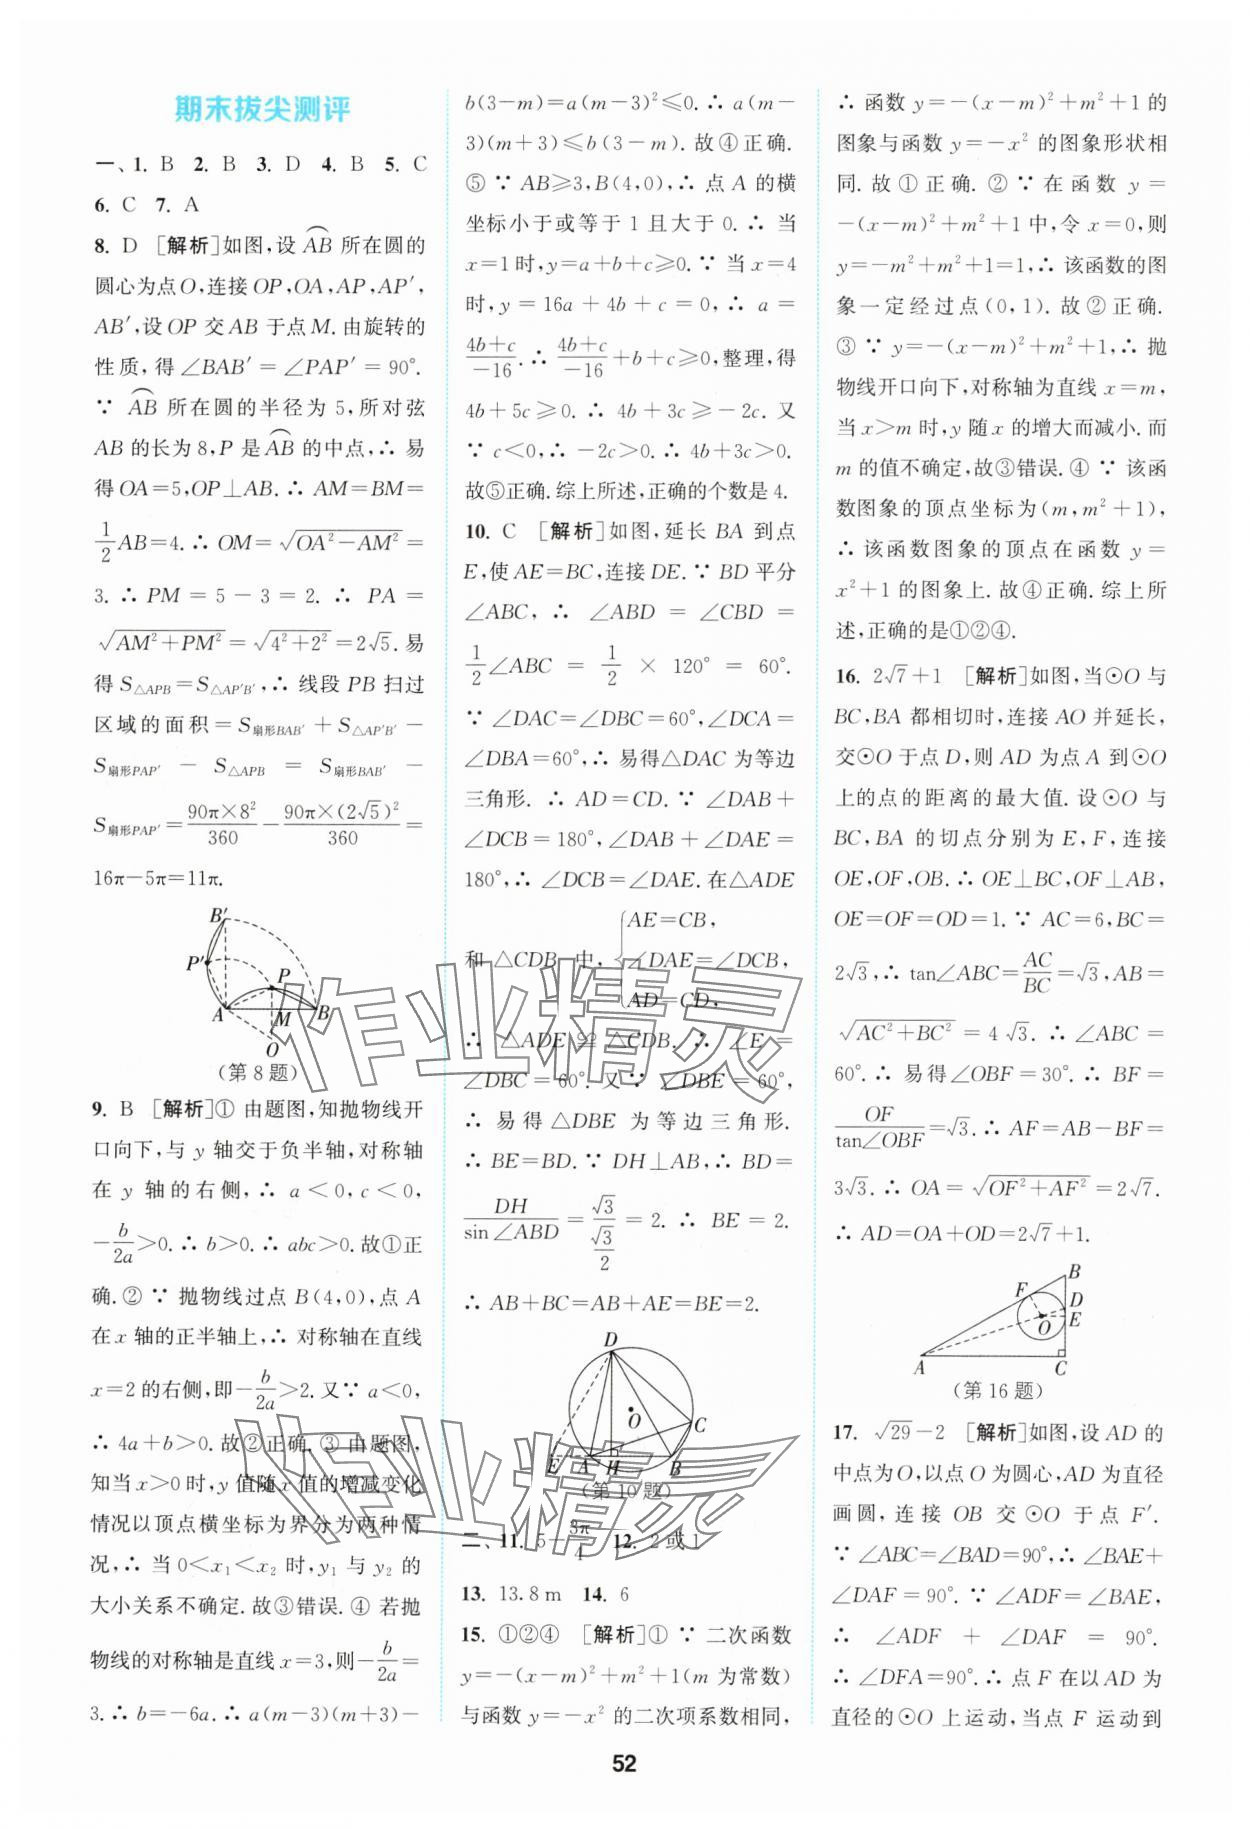 期末拔尖测评
一、1. B 2. B 3. D 4. B 5. C
6. C 7. A
8. D [解析]如图,设 $\overset{\frown}{AB}$ 所在圆的
圆心为点O,连接OP,OA,AP,AP′,
AB′,设OP交AB于点M.由旋转的
性质,得∠BAB′=∠PAP′=90°.
∵ $\overset{\frown}{AB}$ 所在圆的半径为5,所对弦
AB的长为8,P是$\overset{\frown}{AB}$的中点,∴ 易
得OA=5,OP⊥AB.∴ AM=BM=
$\frac{1}{2}$AB=4.∴ OM=$\sqrt{OA^2-AM^2}$=
3.∴ PM=5-3=2.∴ PA=
$\sqrt{AM^2+PM^2}=\sqrt{4^2+2^2}=2\sqrt{5}$.易
得$S_{△APB}=S_{△AP′B′}$,∴ 线段PB扫过
区域的面积=$S_{扇形BAB′}+S_{△AP′B′}-$
$S_{扇形PAP′}-S_{△APB}=S_{扇形BAB′}-$
$S_{扇形PAP′}=\frac{90π×8^2}{360}-\frac{90π×(2\sqrt{5})^2}{360}=$
16π-5π=11π.
B′
P′
P
A
M
B
O
(第8题)
9. B [解析]① 由题图,知抛物线开
口向下,与y轴交于负半轴,对称轴
在y轴的右侧,∴ a<0,c<0,
$-\frac{b}{2a}$>0.∴ b>0.∴ abc>0.故①正
确.② ∵ 抛物线过点B(4,0),点A
在x轴的正半轴上,∴ 对称轴在直线
x=2的右侧,即$-\frac{b}{2a}$>2.又∵ a<0,
∴ 4a+b>0.故②正确.③ 由题图,
知当x>0时,y值随x值的增减变化
情况以顶点横坐标为界分为两种情
况,∴ 当0<x₁<x₂时,y₁与y₂的
大小关系不确定.故③错误.④ 若抛
物线的对称轴是直线x=3,则$-\frac{b}{2a}$=
3.∴ b=-6a.∴ a(m-3)(m+3)-
b(3-m)=a(m-3)²≤0.∴ a(m-
3)(m+3)≤b(3-m).故④正确.
⑤ ∵ AB≥3,B(4,0),∴ 点A的横
坐标小于或等于1且大于0.∴ 当
x=1时,y=a+b+c≥0.∵ 当x=4
时,y=16a+4b+c=0,∴ a=
$\frac{4b+c}{-16}$.∴ $\frac{4b+c}{-16}$+b+c≥0,整理,得
4b+5c≥0.∴ 4b+3c≥-2c.又
∵ c<0,∴ -2c>0.∴ 4b+3c>0.
故⑤正确.综上所述,正确的个数是4.
10. C [解析]如图,延长BA到点
E,使AE=BC,连接DE.∵ BD平分
∠ABC,∴ ∠ABD=∠CBD=
$\frac{1}{2}$∠ABC=$\frac{1}{2}$×120°=60°.
∵ ∠DAC=∠DBC=60°,∠DCA=
∠DBA=60°,∴ 易得△DAC为等边
三角形.∴ AD=CD.∵ ∠DAB+
∠DCB=180°,∠DAB+∠DAE=
180°,∴ ∠DCB=∠DAE.在△ADE
和△CDB中,$\begin{cases}AE=CB,\\∠DAE=∠DCB,\\AD=CD,\end{cases}$
∴ △ADE≌△CDB.∴ ∠E=
∠DBC=60°.又∵ ∠DBE=60°,
∴ 易得△DBE为等边三角形.
∴ BE=BD.∵ DH⊥AB,∴ BD=
$\frac{DH}{\sin∠ABD}=\frac{\sqrt{3}}{\frac{\sqrt{3}}{2}}$=2.∴ BE=2.
∴ AB+BC=AB+AE=BE=2.
D
O
C
E
A
H
B
(第10题)
二、11. 5-$\frac{3π}{4}$ 12. 2或1
13. 13.8 m 14. 6
15. ①②④ [解析]① ∵ 二次函数
y=-(x-m)²+m²+1(m为常数)
与函数y=-x²的二次项系数相同,
∴ 函数y=-(x-m)²+m²+1的
图象与函数y=-x²的图象形状相
同.故①正确.② ∵ 在函数y=
-(x-m)²+m²+1中,令x=0,则
y=-m²+m²+1=1,∴ 该函数的图
象一定经过点(0,1).故②正确.
③ ∵ y=-(x-m)²+m²+1,∴ 抛
物线开口向下,对称轴为直线x=m,
当x>m时,y随x的增大而减小.而
m的值不确定,故③错误.④ ∵ 该函
数图象的顶点坐标为(m,m²+1),
∴ 该函数图象的顶点在函数y=
x²+1的图象上.故④正确.综上所
述,正确的是①②④.
16. $2\sqrt{7}+1$ [解析]如图,当⊙O与
BC,BA都相切时,连接AO并延长,
交⊙O于点D,则AD为点A到⊙O
上的点的距离的最大值.设⊙O与
BC,BA的切点分别为E,F,连接
OE,OF,OB.∴ OE⊥BC,OF⊥AB,
OE=OF=OD=1.∵ AC=6,BC=
$2\sqrt{3}$,∴ tan∠ABC=$\frac{AC}{BC}=\sqrt{3}$,AB=
$\sqrt{AC^2+BC^2}=4\sqrt{3}$.∴ ∠ABC=
60°.∴ 易得∠OBF=30°.∴ BF=
$\frac{OF}{\tan∠OBF}=\sqrt{3}$.∴ AF=AB-BF=
$3\sqrt{3}$.∴ OA=$\sqrt{OF^2+AF^2}=2\sqrt{7}$.
∴ AD=OA+OD=$2\sqrt{7}+1$.
B
F
D
E
O
A
C
(第16题)
17. $\sqrt{29}-2$ [解析]如图,设AD的
中点为O,以点O为圆心,AD为直径
画圆,连接OB交⊙O于点F′.
∵ ∠ABC=∠BAD=90°,∴ ∠BAE+
∠DAF=90°.∵ ∠ADF=∠BAE,
∴ ∠ADF+∠DAF=90°.
∴ ∠DFA=90°.∴ 点F在以AD为
直径的⊙O上运动,当点F运动到
52
作业精灵
作业精灵